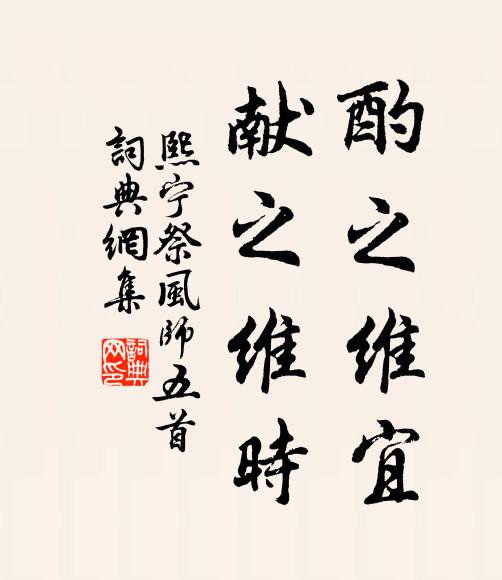 酌之维宜
献之维時
熙宁祭風师五首
詞典網集
詞典
网印